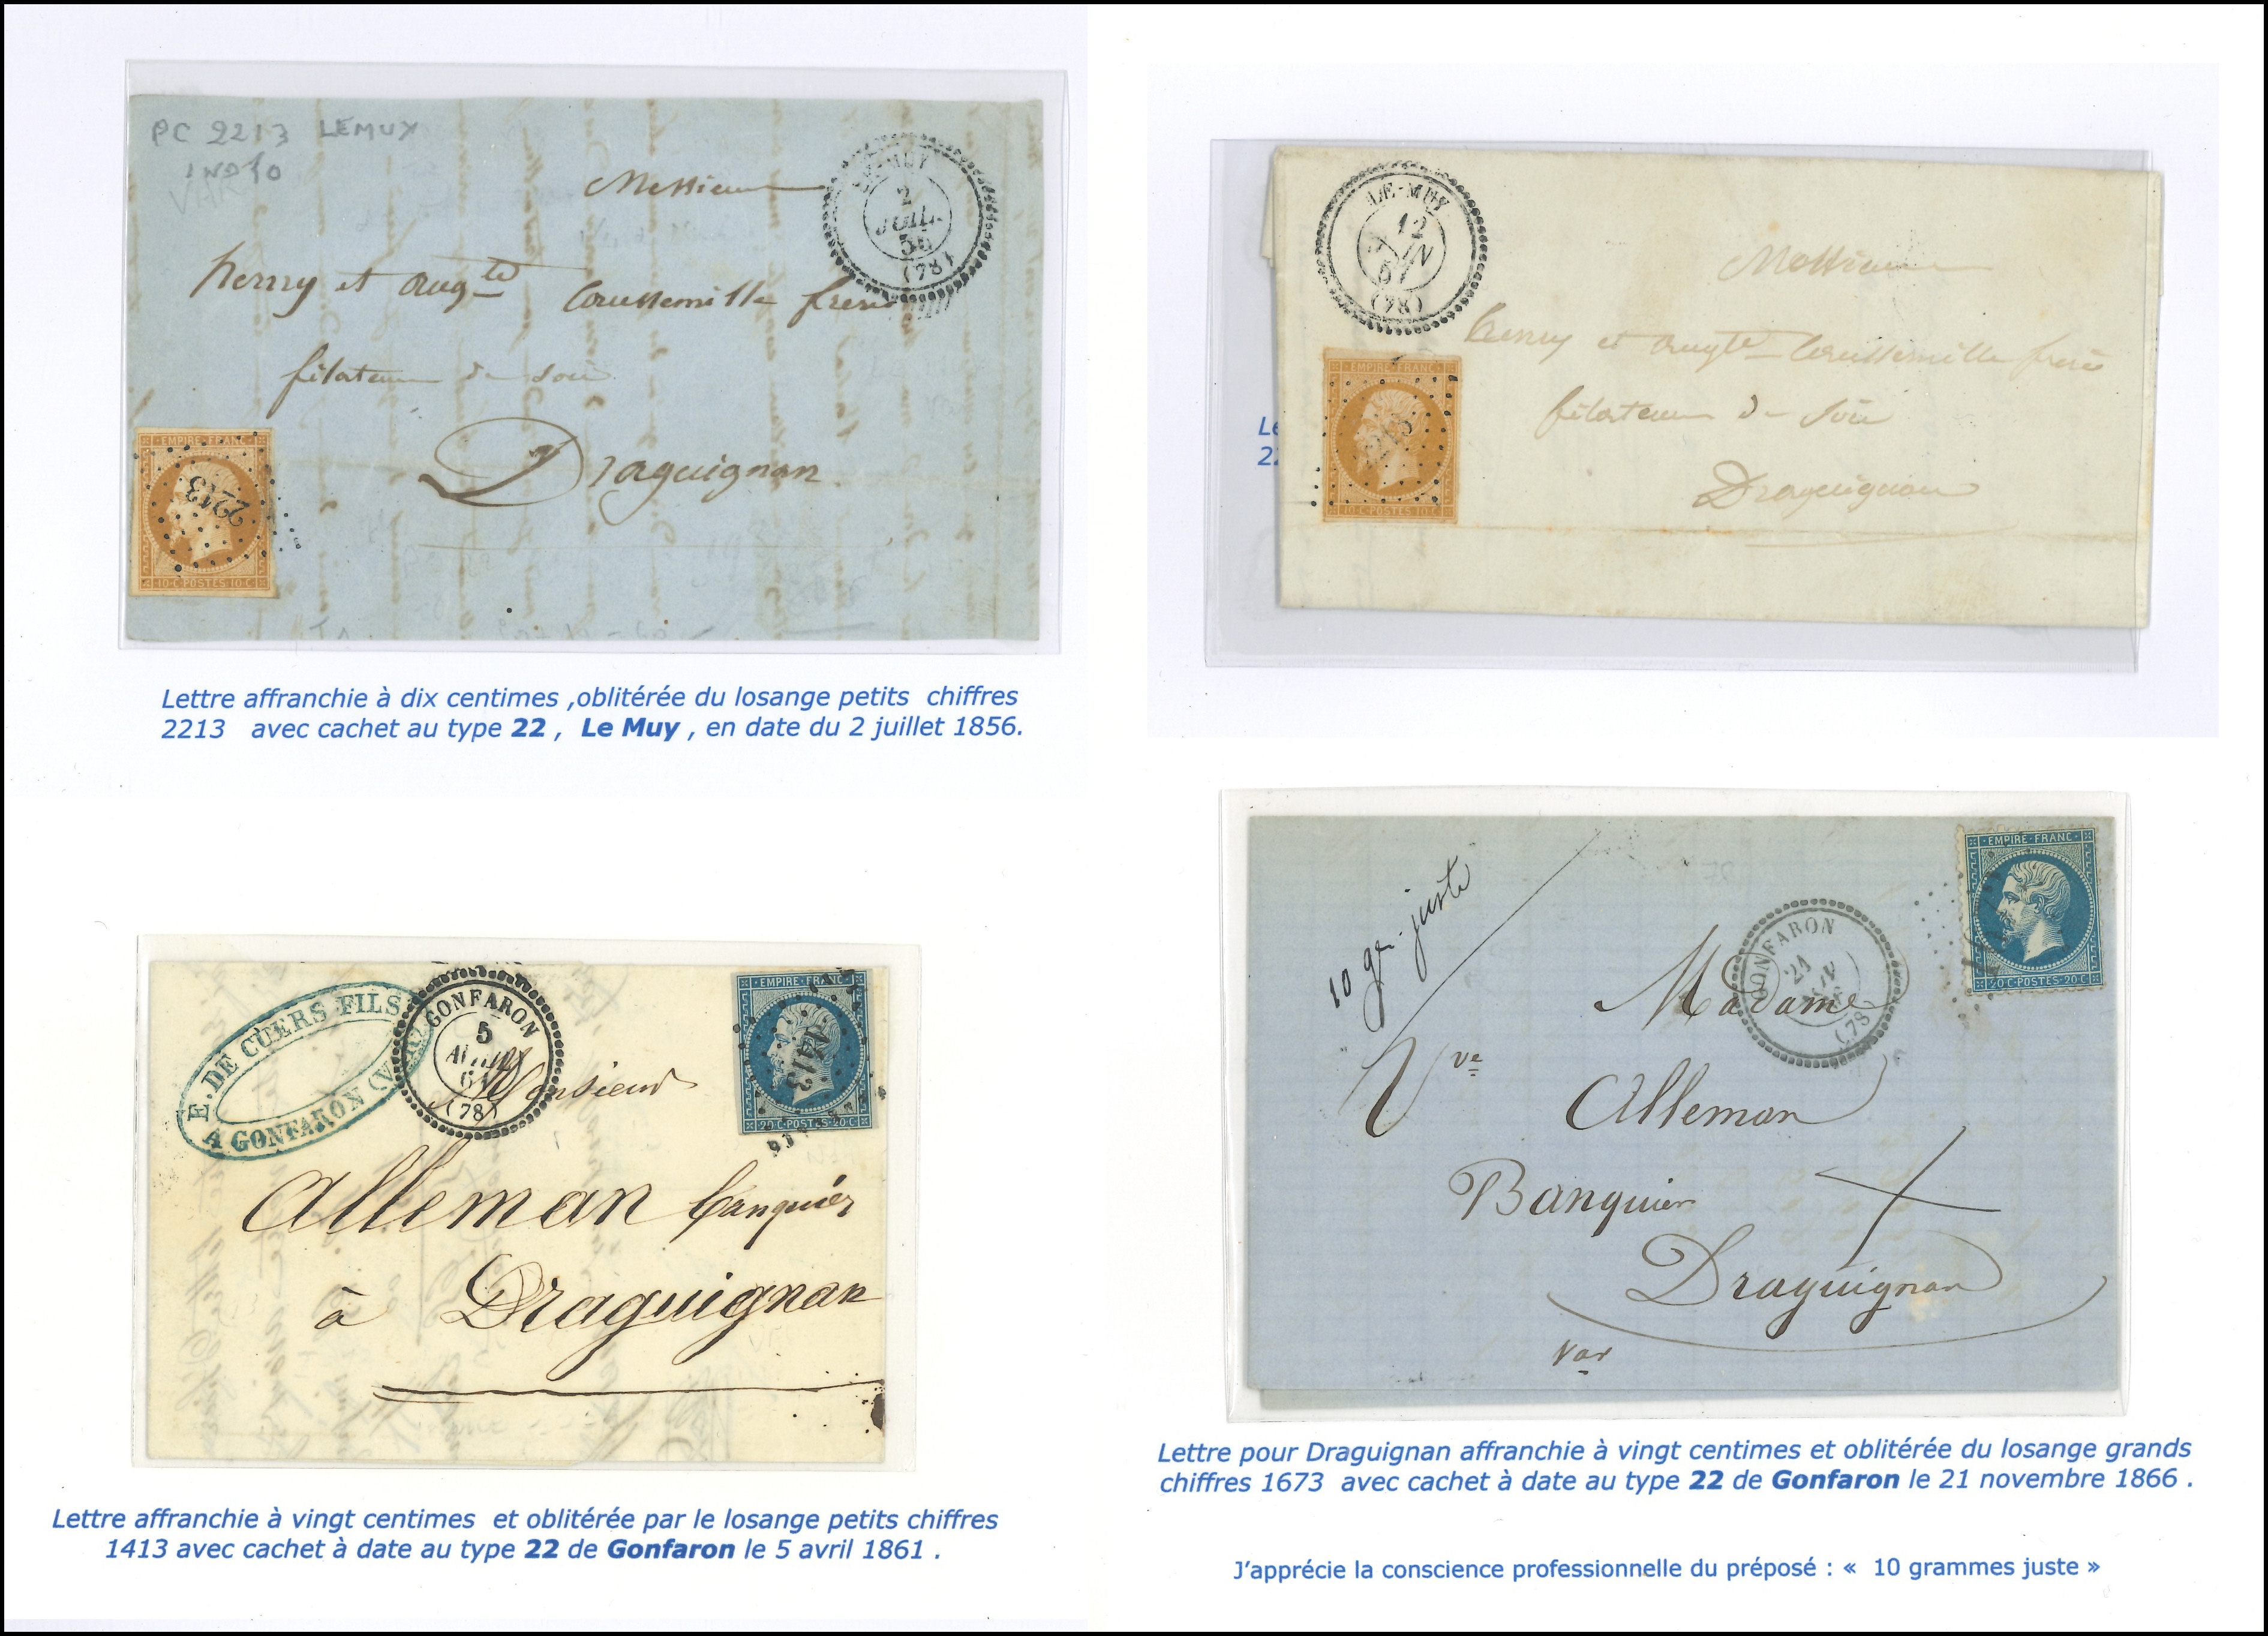 PC 2213 LEMUY
IND 10
VAR
LE-MUY
2
JUIL.
56
(78)
Messieurs
henry et Augte Coussemille freres
filateurs de soie
Draguignan
EMPIRE FRANC
2213
10 C POSTES 10 C
Lettre affranchie à dix centimes ,oblitérée du losange petits chiffres
2213 avec cachet au type 22 , Le Muy , en date du 2 juillet 1856.
LE-MUY
12
(78)
Messieurs
henry et Augte Coussemille freres
filateurs de soie
Draguignan
EMPIRE FRANC
2213
10 C POSTES 10 C
Le
22
E. DE CUERS FILS
A GONFARON (VAR)
GONFARON
5
AVRIL
61
(78)
EMPIRE FRANC
1413
20 C POSTES 20 C
Monsieur
Alleman banquier
à Draguignan
Lettre affranchie à vingt centimes et oblitérée par le losange petits chiffres
1413 avec cachet à date au type 22 de Gonfaron le 5 avril 1861 .
10 gr. juste
GONFARON
21
(78)
EMPIRE FRANC
20 C POSTES 20 C
Madame
Vve Alleman
Banquier
Draguignan
Var
Lettre pour Draguignan affranchie à vingt centimes et oblitérée du losange grands
chiffres 1673 avec cachet à date au type 22 de Gonfaron le 21 novembre 1866 .
J'apprécie la conscience professionnelle du préposé : « 10 grammes juste »